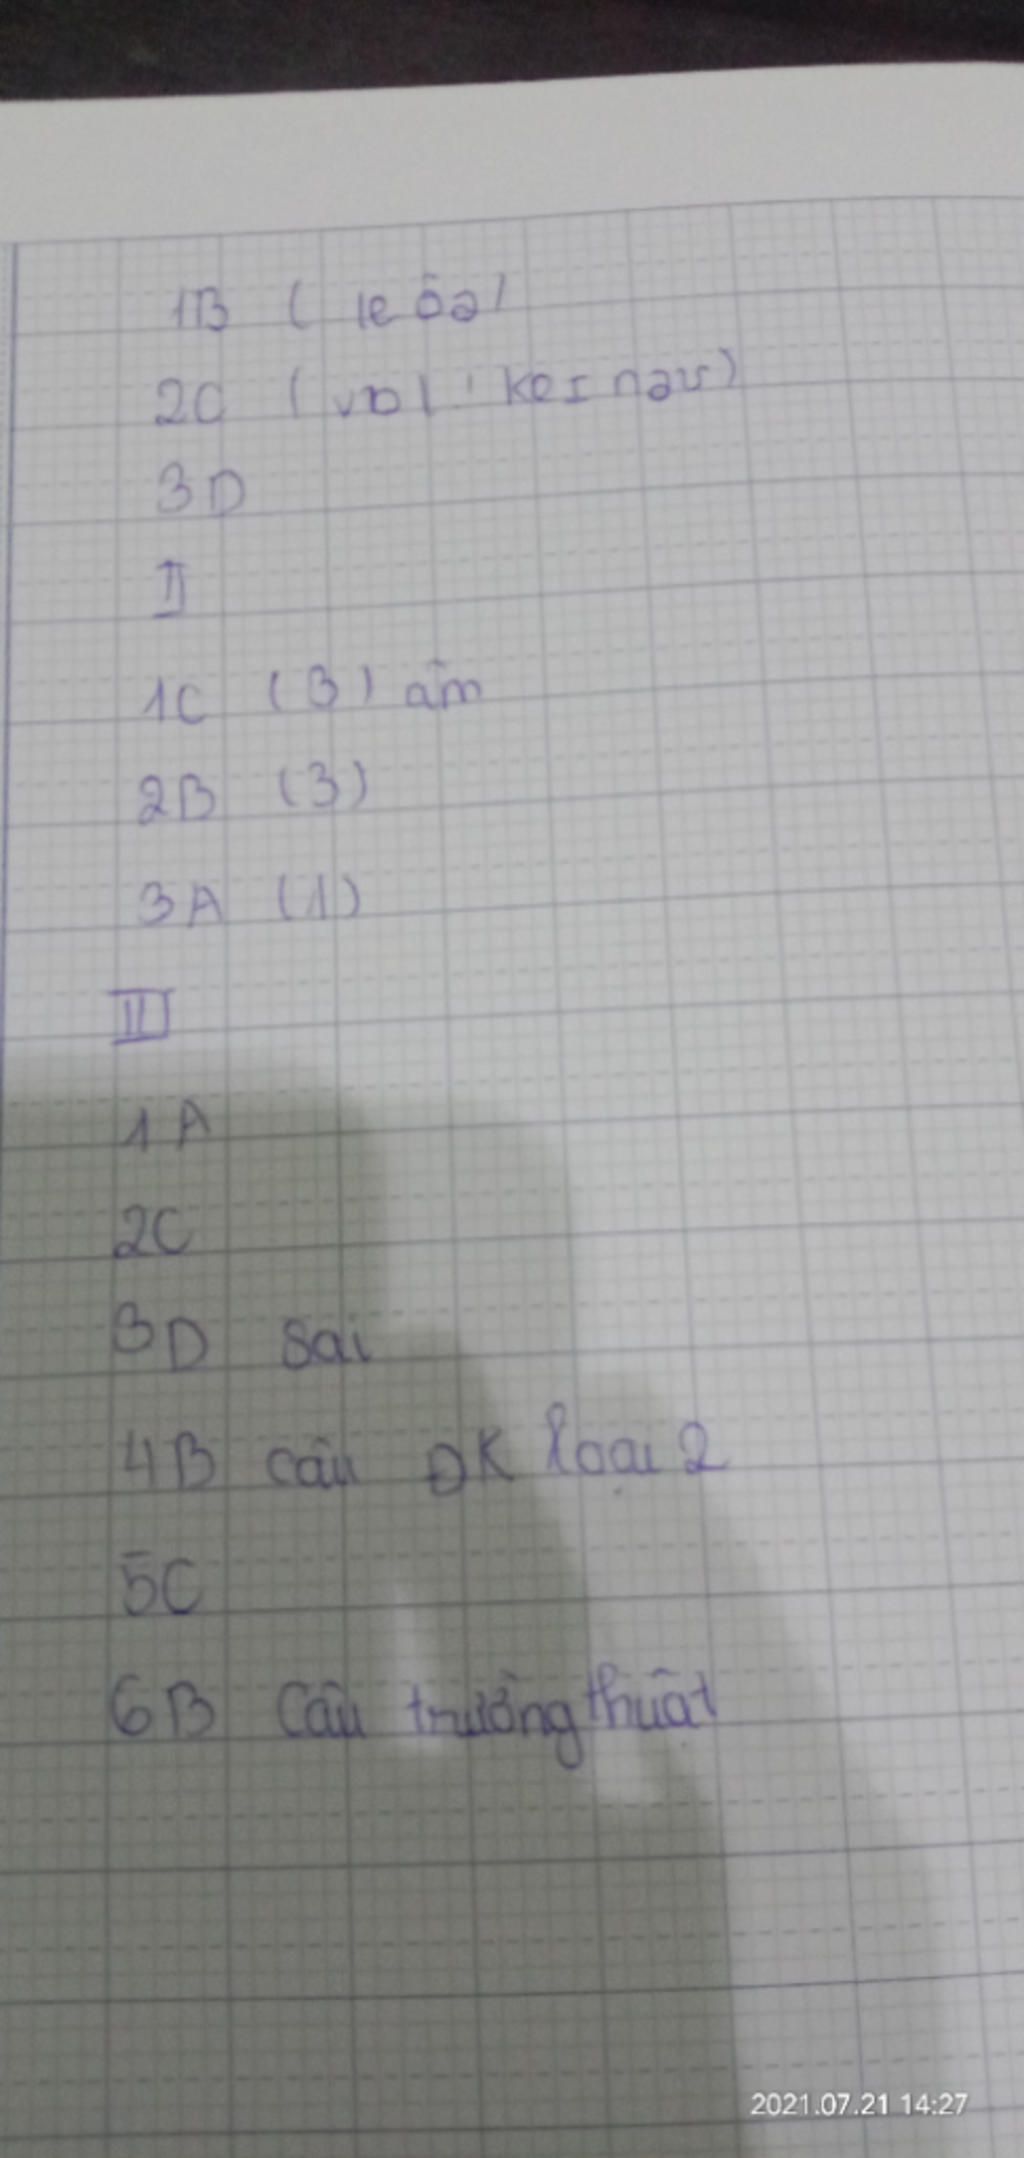 1B ( leðə)
2C ( vɒl'keɪnəʊ)
3D
II
1C (3) âm
2B (3)
3A (1)
III
1A
2C
3D sai
4B câu ĐK loại 2
5C
6B câu trường thuật
2021.07.21 14:27